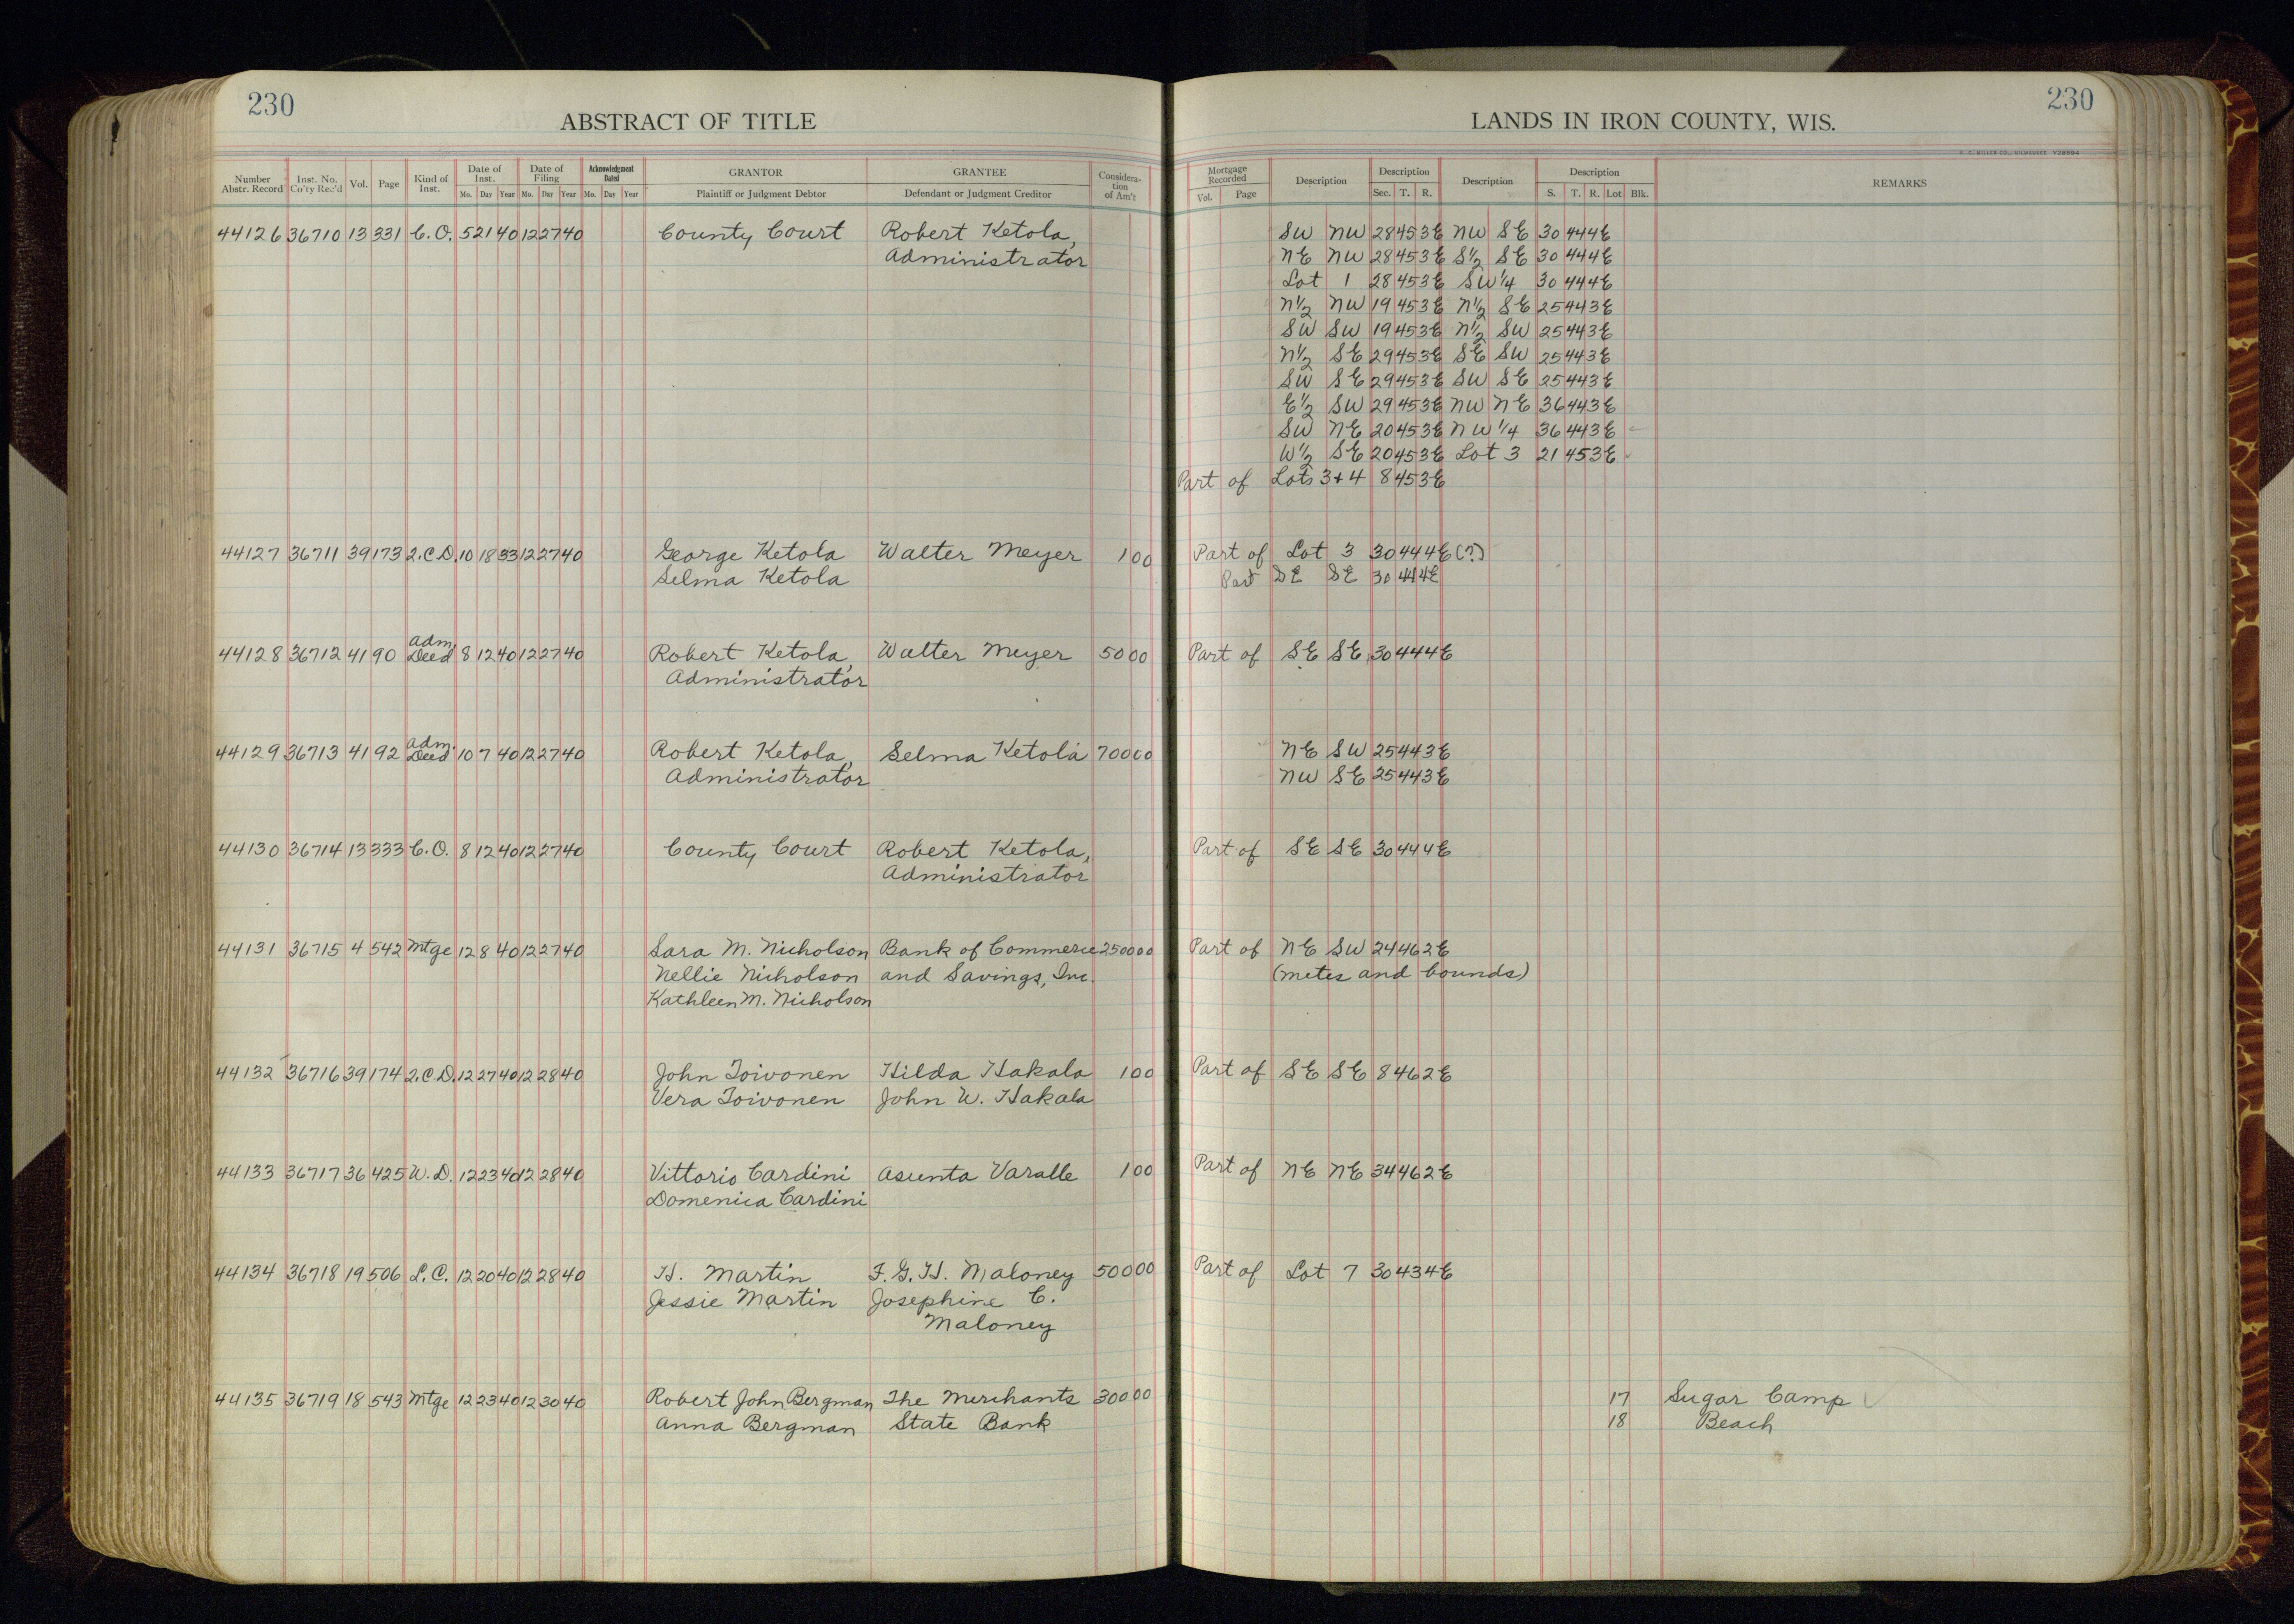 230
ABSTRACT OF TITLE
Number Abstr. Record | Inst. No. Co'ty Rec'd | Vol. | Page | Kind of Inst. | Date of Inst. Mo. Day Year | Date of Filing Mo. Day Year | Acknowledgment Dated Mo. Day Year | GRANTOR Plaintiff or Judgment Debtor | GRANTEE Defendant or Judgment Creditor | Consideration of Am't
44126 36710 13 331 C.O. 5 21 40 12 27 40 County Court Robert Ketola,
Administrator
44127 36711 39 173 2.C.D. 10 18 33 12 27 40 George Ketola Walter Meyer 1 00
Selma Ketola
44128 36712 41 90 Adm. Deed 8 12 40 12 27 40 Robert Ketola, Walter Meyer 50 00
Administrator
44129 36713 41 92 Adm. Deed 10 7 40 12 27 40 Robert Ketola, Selma Ketola 700 00
Administrator
44130 36714 13 333 C.O. 8 12 40 12 27 40 County Court Robert Ketola,
Administrator
44131 36715 4 542 Mtge 12 8 40 12 27 40 Sara M. Nicholson Bank of Commerce 2500 00
Nellie Nicholson and Savings, Inc.
Kathleen M. Nicholson
44132 36716 39 174 2.C.D. 12 27 40 12 28 40 John Toivonen Hilda Hakala 1 00
Vera Toivonen John W. Hakala
44133 36717 36 425 W.D. 12 23 40 12 28 40 Vittorio Cardini Asunta Varalle 1 00
Domenica Cardini
44134 36718 19 506 L.C. 12 20 40 12 28 40 H. Martin F.G.H. Maloney 500 00
Jessie Martin Josephine C.
Maloney
44135 36719 18 543 Mtge 12 23 40 12 30 40 Robert John Bergman The Merchants 300 00
Anna Bergman State Bank
230
LANDS IN IRON COUNTY, WIS.
Mortgage Recorded Vol. Page | Description | Description Sec. T. R. | Description | Description S. T. R. Lot Blk. | REMARKS
SW NW 28 45 3E NW SE 30 44 4E
NE NW 28 45 3E S½ SE 30 44 4E
Lot 1 28 45 3E SW¼ 30 44 4E
N½ NW 19 45 3E N½ SE 25 44 3E
SW SW 19 45 3E N½ SW 25 44 3E
N½ SE 29 45 3E SE SW 25 44 3E
SW SE 29 45 3E SW SE 25 44 3E
E½ SW 29 45 3E NW NE 36 44 3E
SW NE 20 45 3E NW¼ 36 44 3E
W½ SE 20 45 3E Lot 3 21 45 3E
Part of Lots 3+4 8 45 3E
Part of Lot 3 30 44 4E (?)
Part SE SE 30 44 4E
Part of SE SE 30 44 4E
NE SW 25 44 3E
NW SE 25 44 3E
Part of SE SE 30 44 4E
Part of NE SW 24 46 2E
(metes and bounds)
Part of SE SE 8 46 2E
Part of NE NE 34 46 2E
Part of Lot 7 30 43 4E
17 Sugar Camp
18 Beach